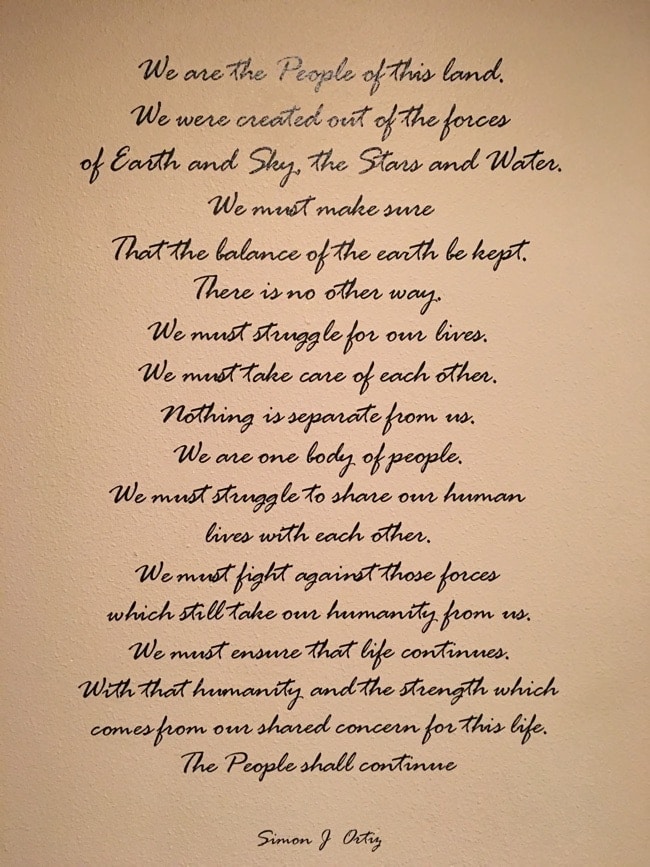 We are the People of this land.
We were created out of the forces
of Earth and Sky, the Stars and Water.
We must make sure
That the balance of the earth be kept.
There is no other way.
We must struggle for our lives.
We must take care of each other.
Nothing is separate from us.
We are one body of people.
We must struggle to share our human
lives with each other.
We must fight against those forces
which still take our humanity from us.
We must ensure that life continues.
With that humanity and the strength which
comes from our shared concern for this life.
The People shall continue
Simon J Ortiz